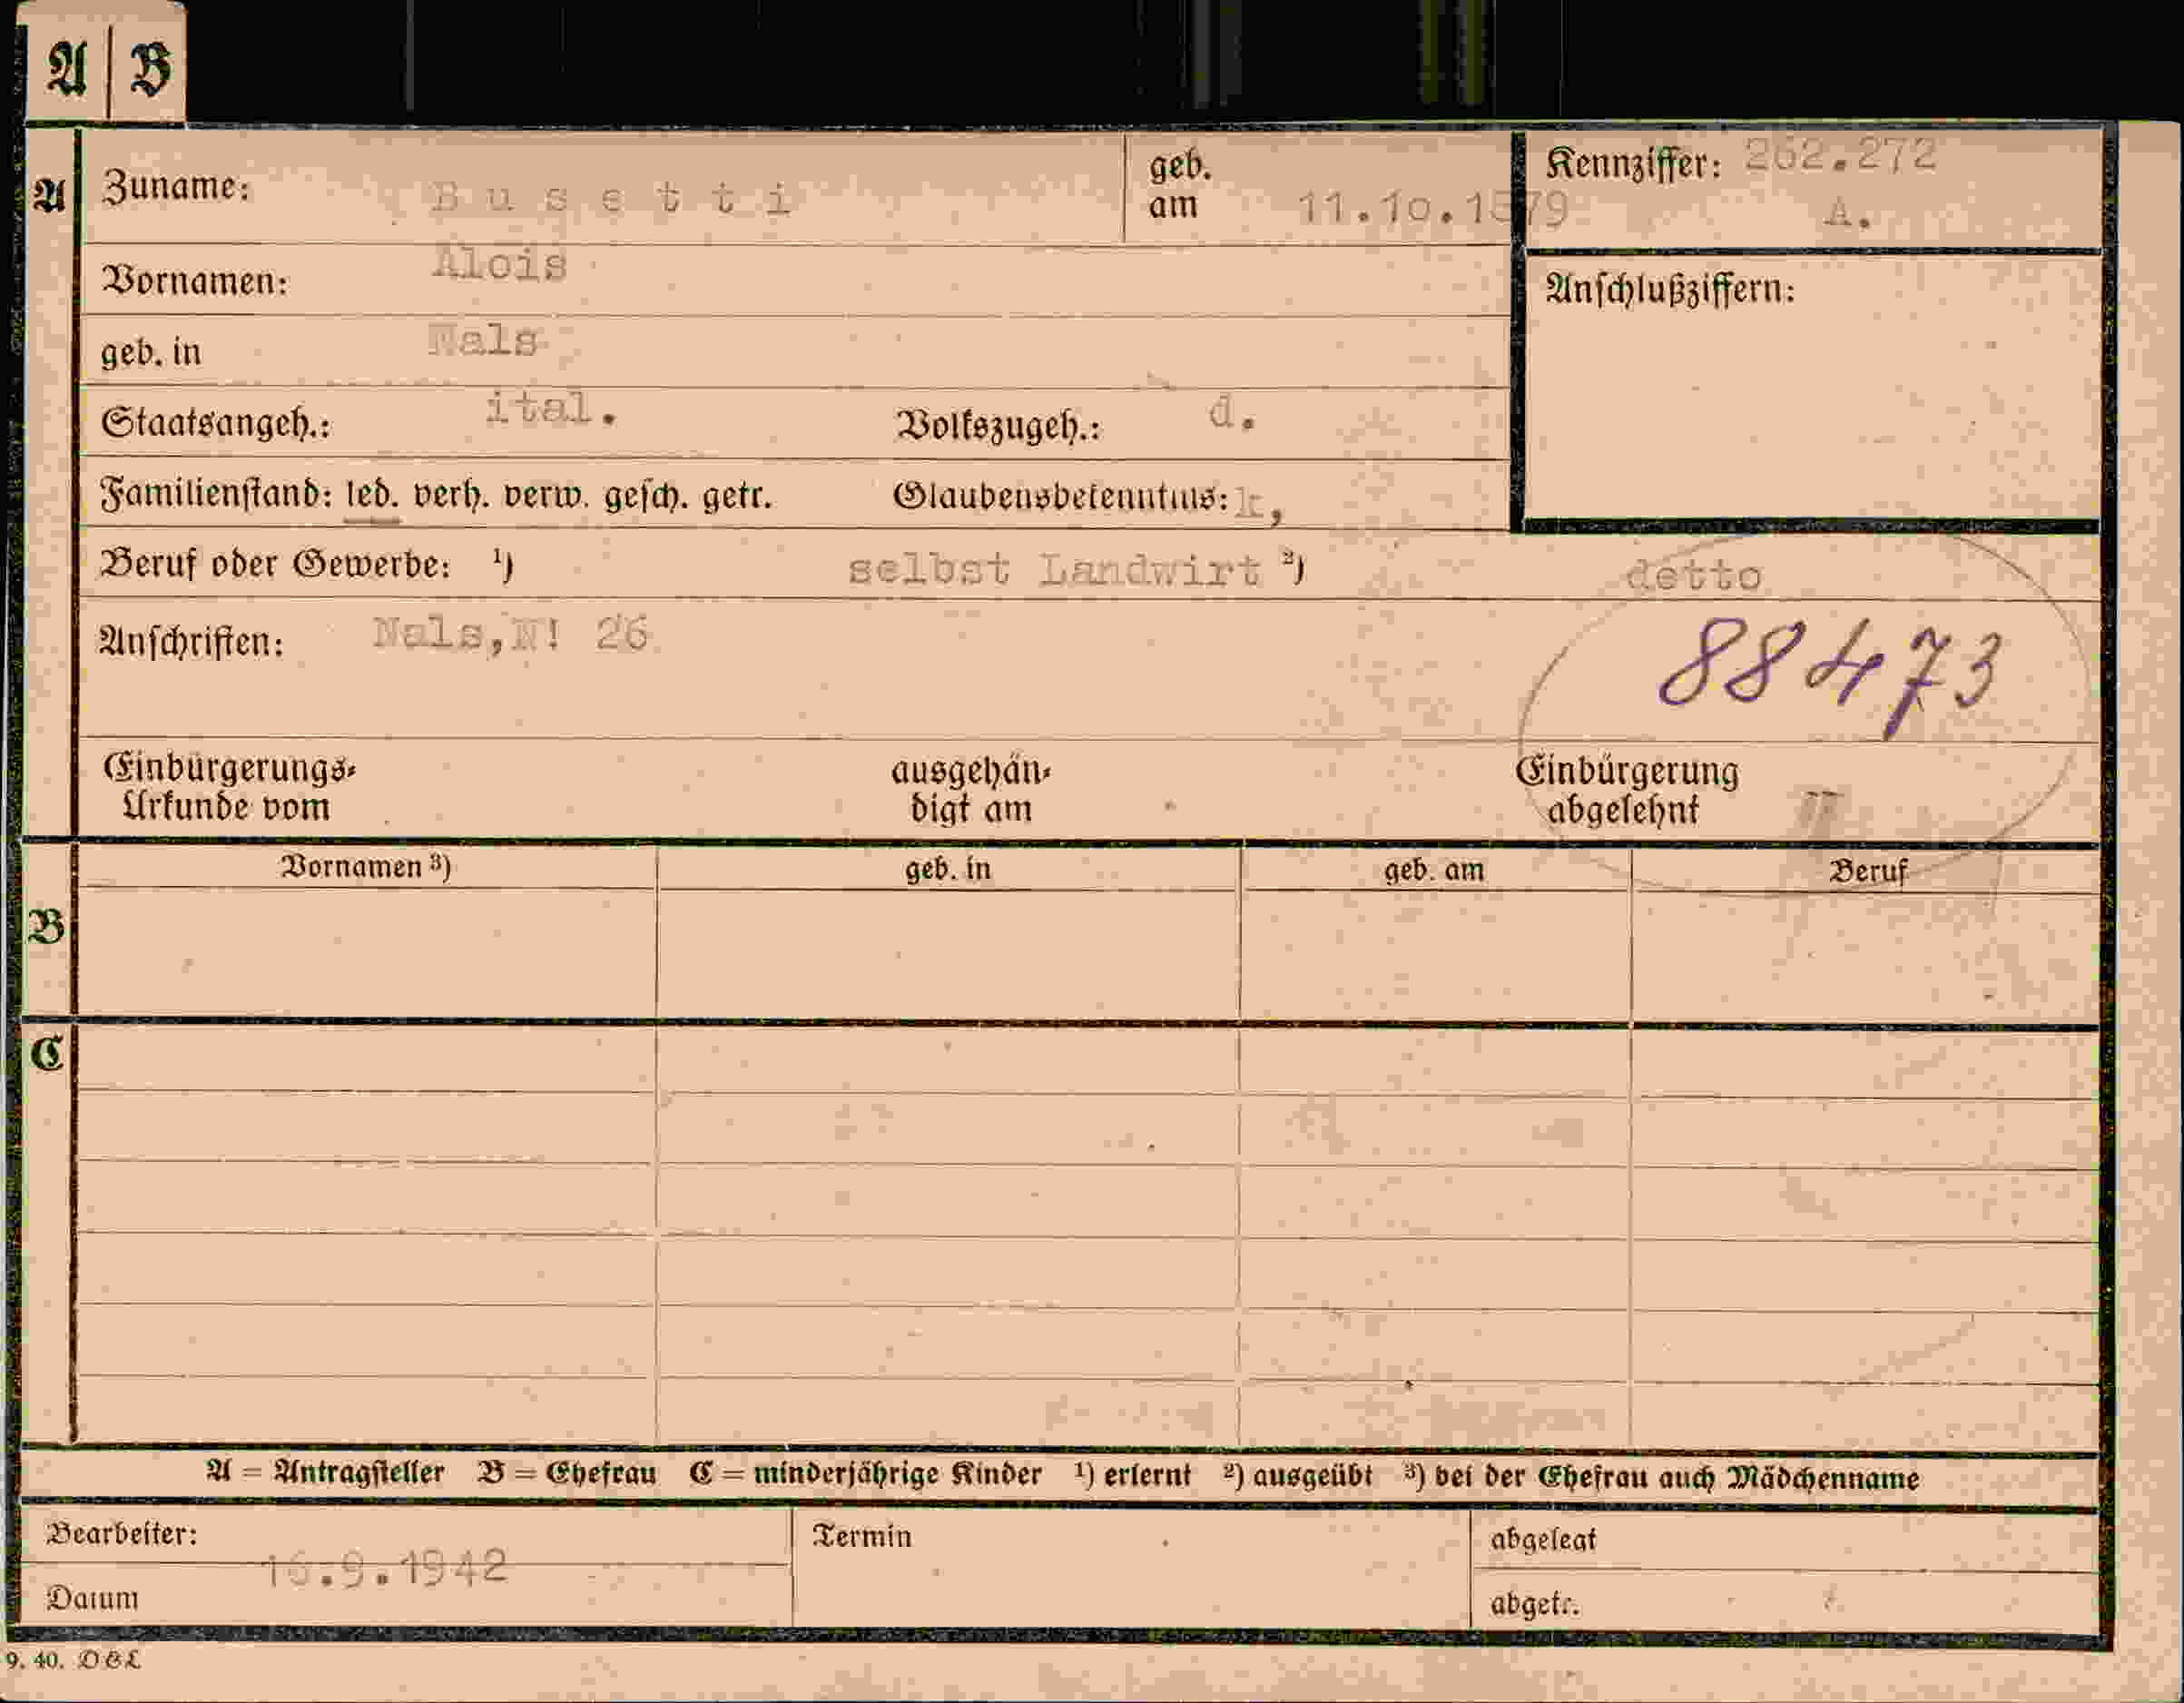 A | B
A Zuname: B u s e t t i geb. am 11.10.1879 Kennziffer: 262.272
A.
Vornamen: Alois Anschlußziffern:
geb. in Nals
Staatsangeh.: ital. Volkszugeh.: d.
Familienstand: led. verh. verw. gesch. getr. Glaubensbekenntnis: k,
Beruf oder Gewerbe: ¹) selbst Landwirt ²) detto
Anschriften: Nals,N! 26 88473
Einbürgerungs-Urkunde vom ausgehändigt am Einbürgerung abgelehnt
Vornamen ³) geb. in geb. am Beruf
B
C
A = Antragsteller B = Ehefrau C = minderjährige Kinder ¹) erlernt ²) ausgeübt ³) bei der Ehefrau auch Mädchenname
Bearbeiter: Termin abgelegt
16.9.1942
Datum abgetr.
9. 40.